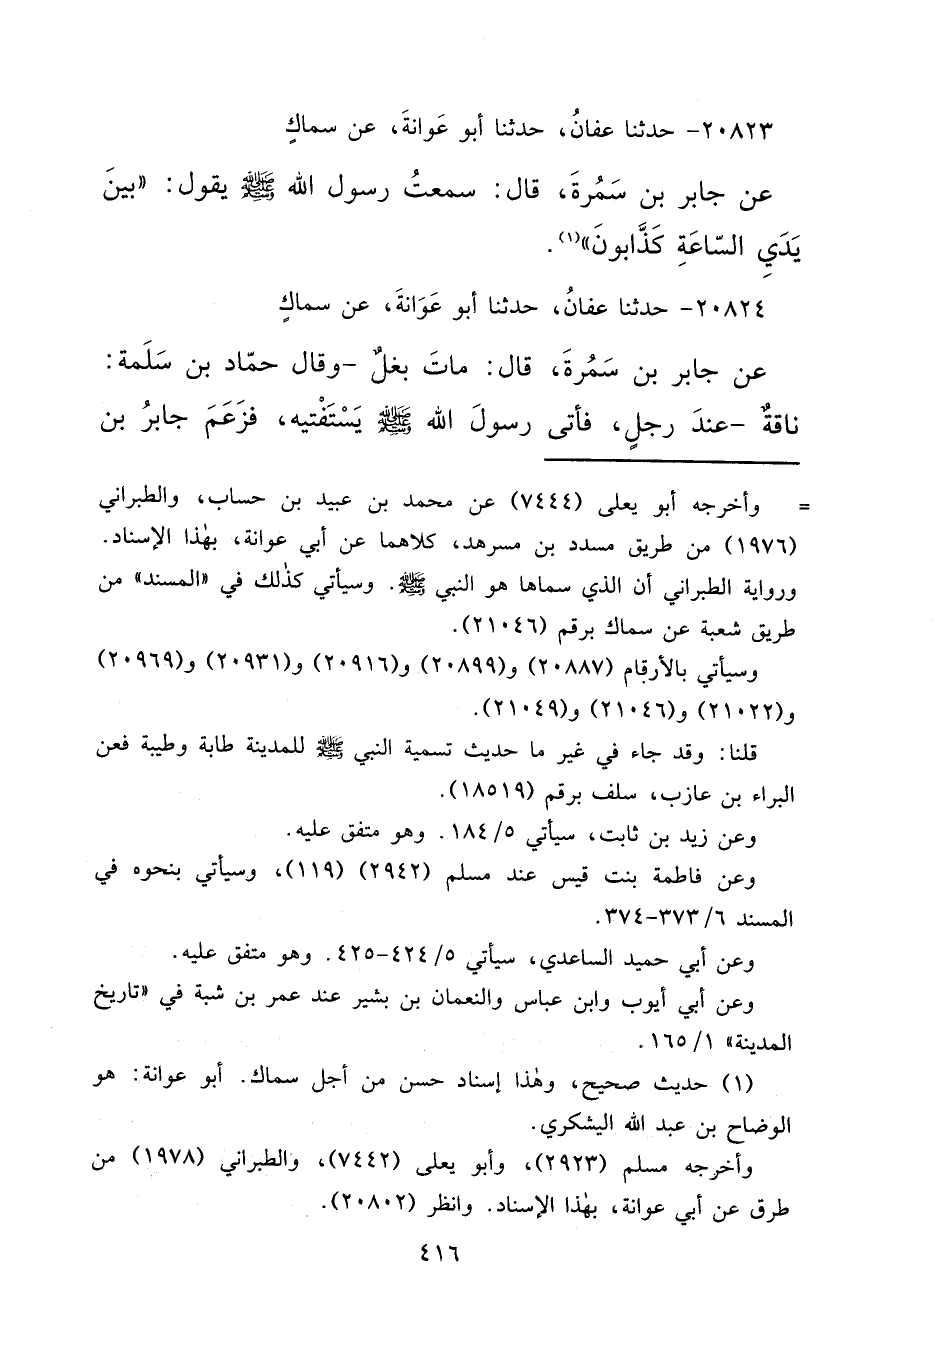 ٢٠٨٢٣- حدثنا عفانُ، حدثنا أبو عَوانةَ، عن سماكٍ
عن جابر بن سَمُرةَ، قال: سمعتُ رسول الله ﷺ يقول: «بينَ
يَدَيِ السّاعَةِ كَذَّابونَ»(١).
٢٠٨٢٤- حدثنا عفانُ، حدثنا أبو عَوَانةَ، عن سماكٍ
عن جابر بن سَمُرةَ، قال: ماتَ بغلٌ -وقال حمّاد بن سَلَمة:
ناقةٌ -عندَ رجلٍ، فأتى رسولَ الله ﷺ يَسْتَفْتيه، فزَعَمَ جابرُ بن
= وأخرجه أبو يعلى (٧٤٤٤) عن محمد بن عبيد بن حساب، والطبراني
(١٩٧٦) من طريق مسدد بن مسرهد، كلاهما عن أبي عوانة، بهٰذا الإسناد.
ورواية الطبراني أن الذي سماها هو النبي ﷺ. وسيأتي كذٰلك في «المسند» من
طريق شعبة عن سماك برقم (٢١٠٤٦).
وسيأتي بالأرقام (٢٠٨٨٧) و(٢٠٨٩٩) و(٢٠٩١٦) و(٢٠٩٣١) و(٢٠٩٦٩)
و(٢١٠٢٢) و(٢١٠٤٦) و(٢١٠٤٩).
قلنا: وقد جاء في غير ما حديث تسمية النبي ﷺ للمدينة طابة وطيبة فعن
البراء بن عازب، سلف برقم (١٨٥١٩).
وعن زيد بن ثابت، سيأتي ٥/ ١٨٤. وهو متفق عليه.
وعن فاطمة بنت قيس عند مسلم (٢٩٤٢) (١١٩)، وسيأتي بنحوه في
المسند ٦/ ٣٧٣-٣٧٤.
وعن أبي حميد الساعدي، سيأتي ٥/ ٤٢٤-٤٢٥. وهو متفق عليه.
وعن أبي أيوب وابن عباس والنعمان بن بشير عند عمر بن شبة في «تاريخ
المدينة» ١/ ١٦٥.
(١) حديث صحيح، وهٰذا إسناد حسن من أجل سماك. أبو عوانة: هو
الوضاح بن عبد الله اليشكري.
وأخرجه مسلم (٢٩٢٣)، وأبو يعلى (٧٤٤٢)، والطبراني (١٩٧٨) من
طرق عن أبي عوانة، بهٰذا الإسناد. وانظر (٢٠٨٠٢).
٤١٦